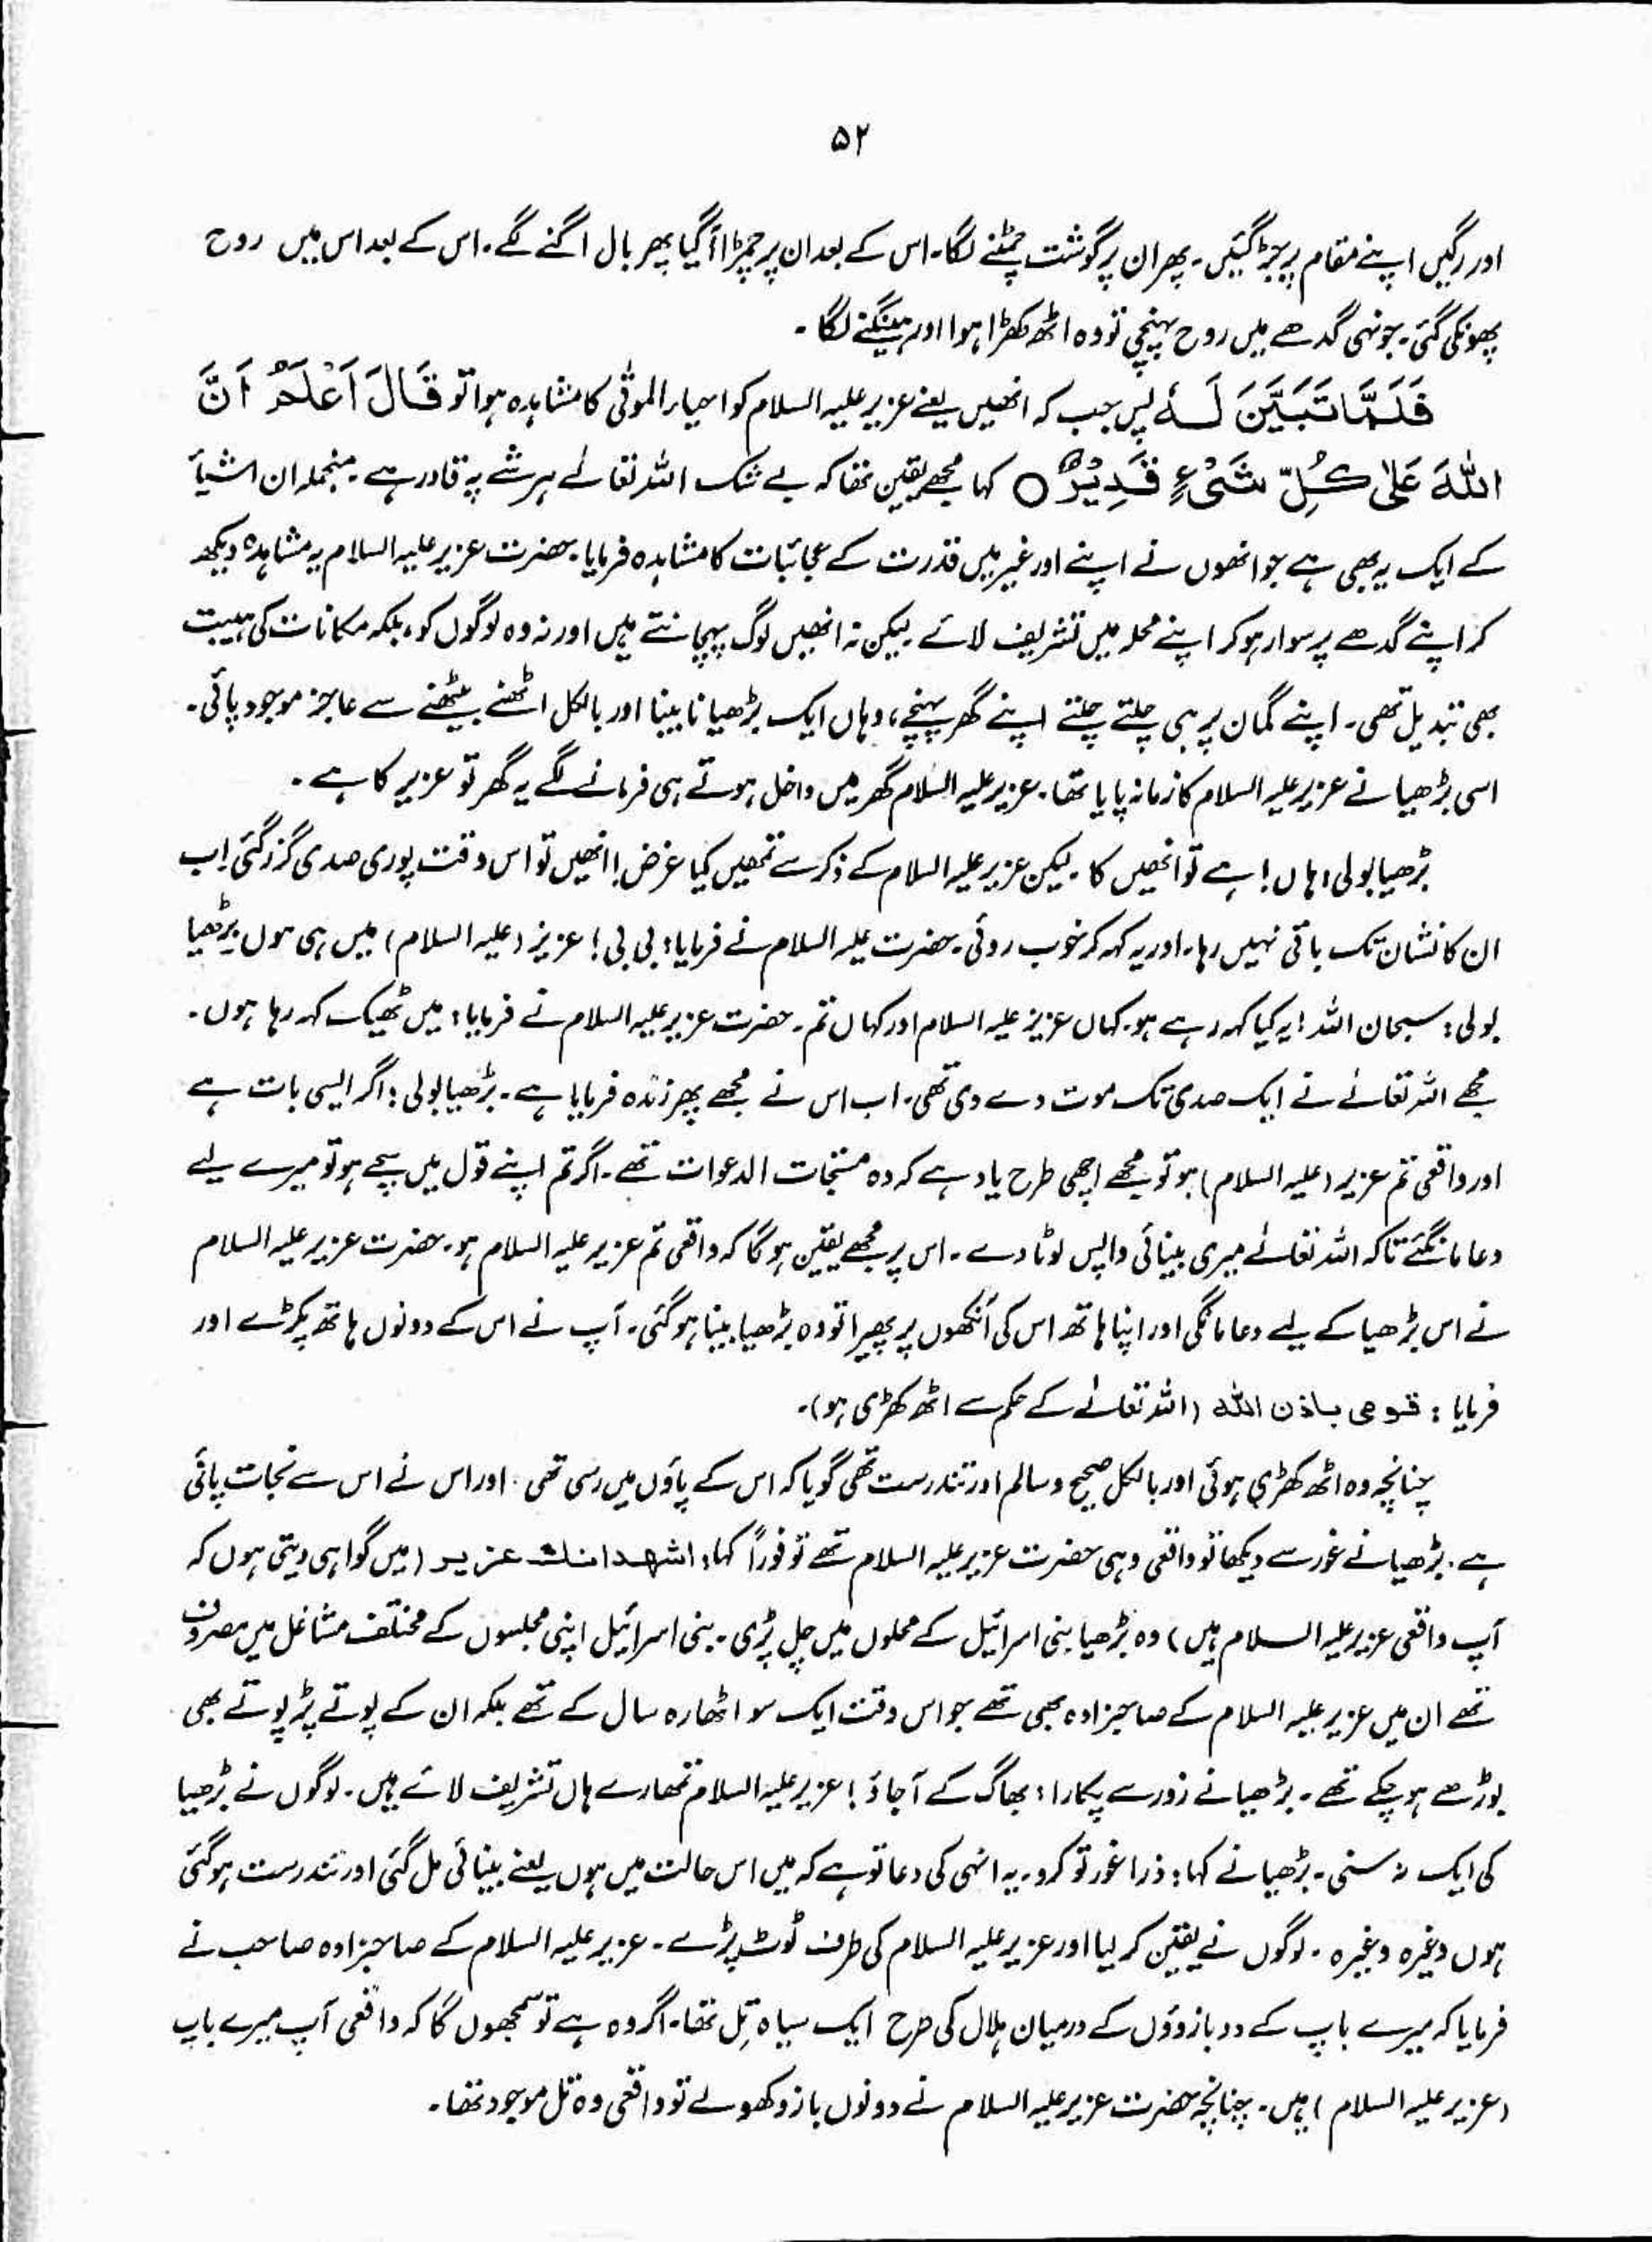 ۵۲
اور رگیں اپنے مقام پر جڑ گئیں۔ پھر ان پر گوشت چمٹنے لگا۔ اس کے بعد ان پر چمڑا آگیا پھر بال اگنے لگے۔ اس کے بعد اس میں روح
پھونکی گئی۔ جونہی گدھے میں روح پہنچی تو وہ اٹھ کھڑا ہوا اور ہینگنے لگا۔
فَلَمَّا تَبَيَّنَ لَهٗ پس جب کہ انھیں یعنے عزیر علیہ السلام کو احیاء الموتٰی کا مشاہدہ ہوا تو قَالَ اَعْلَمُ اَنَّ
اللّٰهَ عَلٰى كُلِّ شَیْءٍ قَدِيْرٌ ○ کہا مجھے یقین تھا کہ بے شک اللہ تعالےٰ ہر شے پہ قادر ہے۔ منجملہ ان اشیأ
کے ایک یہ بھی ہے جو انھوں نے اپنے اور غیر میں قدرت کے عجائبات کا مشاہدہ فرمایا۔ حضرت عزیر علیہ السلام یہ مشاہدہ دیکھ
کر اپنے گدھے پر سوار ہو کر اپنے محلہ میں تشریف لائے۔ لیکن نہ انھیں لوگ پہچانتے ہیں اور نہ وہ لوگوں کو، بلکہ مکانات کی ہیبت
بھی تبدیل تھی۔ اپنے گمان پر ہی چلتے چلتے اپنے گھر پہنچے، وہاں ایک بڑھیا نابینا اور بالکل اٹھنے بیٹھنے سے عاجز موجود پائی۔
اسی بڑھیا نے عزیر علیہ السلام کا زمانہ پایا تھا۔ عزیر علیہ السلام گھر میں داخل ہوتے ہی فرمانے لگے یہ گھر تو عزیر کا ہے۔
بڑھیا بولی، ہاں! ہے تو انھیں کا۔ لیکن عزیر علیہ السلام کے ذکر سے تمھیں کیا غرض! انھیں تو اس وقت پوری صدی گزر گئی اب
ان کا نشان تک باقی نہیں رہا۔ اور یہ کہہ کر خوب روئی۔ حضرت علیہ السلام نے فرمایا: بی بی! عزیز (علیہ السلام) میں ہی ہوں۔ بڑھیا
بولی: سبحان اللہ! یہ کیا کہہ رہے ہو۔ کہاں عزیز علیہ السلام اور کہاں تم۔ حضرت عزیر علیہ السلام نے فرمایا: میں ٹھیک کہہ رہا ہوں۔
مجھے اللہ تعالےٰ نے ایک صدی تک موت دے دی تھی۔ اب اس نے مجھے پھر زندہ فرمایا ہے۔ بڑھیا بولی: اگر ایسی بات ہے
اور واقعی تم عزیر (علیہ السلام) ہو تو مجھے اچھی طرح یاد ہے کہ وہ مستجات الدعوات تھے۔ اگر تم اپنے قول میں سچے ہو تو میرے لیے
دعا مانگئے تاکہ اللہ تعالےٰ میری بینائی واپس لوٹا دے۔ اس پر مجھے یقین ہوگا کہ واقعی تم عزیر علیہ السلام ہو۔ حضرت عزیر علیہ السلام
نے اس بڑھیا کے لیے دعا مانگی اور اپنا ہاتھ اس کی آنکھوں پر پھیرا تو وہ بڑھیا بینا ہوگئی۔ آپ نے اس کے دونوں ہاتھ پکڑے اور
فرمایا: قومی باذن اللّٰه (اللہ تعالےٰ کے حکم سے اٹھ کھڑی ہو)۔
چنانچہ وہ اٹھ کھڑی ہوئی اور بالکل صحیح و سالم اور تندرست تھی گویا کہ اس کے پاؤں میں رسی تھی۔ اور اس نے اس سے نجات پائی
ہے۔ بڑھیا نے غور سے دیکھا تو واقعی وہی حضرت عزیر علیہ السلام تھے تو فوراً کہا: اشهد انك عزیر (میں گواہی دیتی ہوں کہ
آپ واقعی عزیر علیہ السلام ہیں) وہ بڑھیا بنی اسرائیل کے محلوں میں چل پڑی۔ بنی اسرائیل اپنی مجلسوں کے مختلف مشاغل میں مصروف
تھے ان میں عزیر علیہ السلام کے صاحبزادہ بھی تھے جو اس وقت ایک سو اٹھارہ سال کے تھے بلکہ ان کے پوتے پڑپوتے بھی
بوڑھے ہو چکے تھے۔ بڑھیا نے زور سے پکارا: بھاگ کے آجاؤ! عزیر علیہ السلام تمھارے ہاں تشریف لائے ہیں۔ لوگوں نے بڑھیا
کی ایک نہ سنی۔ بڑھیا نے کہا: ذرا غور تو کرو۔ یہ انہی کی دعا تو ہے کہ میں اس حالت میں ہوں یعنے بینائی مل گئی اور تندرست ہوگئی
ہوں وغیرہ وغیرہ۔ لوگوں نے یقین کر لیا اور عزیر علیہ السلام کی طرف ٹوٹ پڑے۔ عزیر علیہ السلام کے صاحبزادہ صاحب نے
فرمایا کہ میرے باپ کے دو بازوؤں کے درمیان ہلال کی طرح ایک سیاہ تِل تھا۔ اگر وہ ہے تو سمجھوں گا کہ واقعی آپ میرے باپ
(عزیر علیہ السلام) ہیں۔ چنانچہ حضرت عزیر علیہ السلام نے دونوں بازو کھولے تو واقعی وہ تل موجود تھا۔